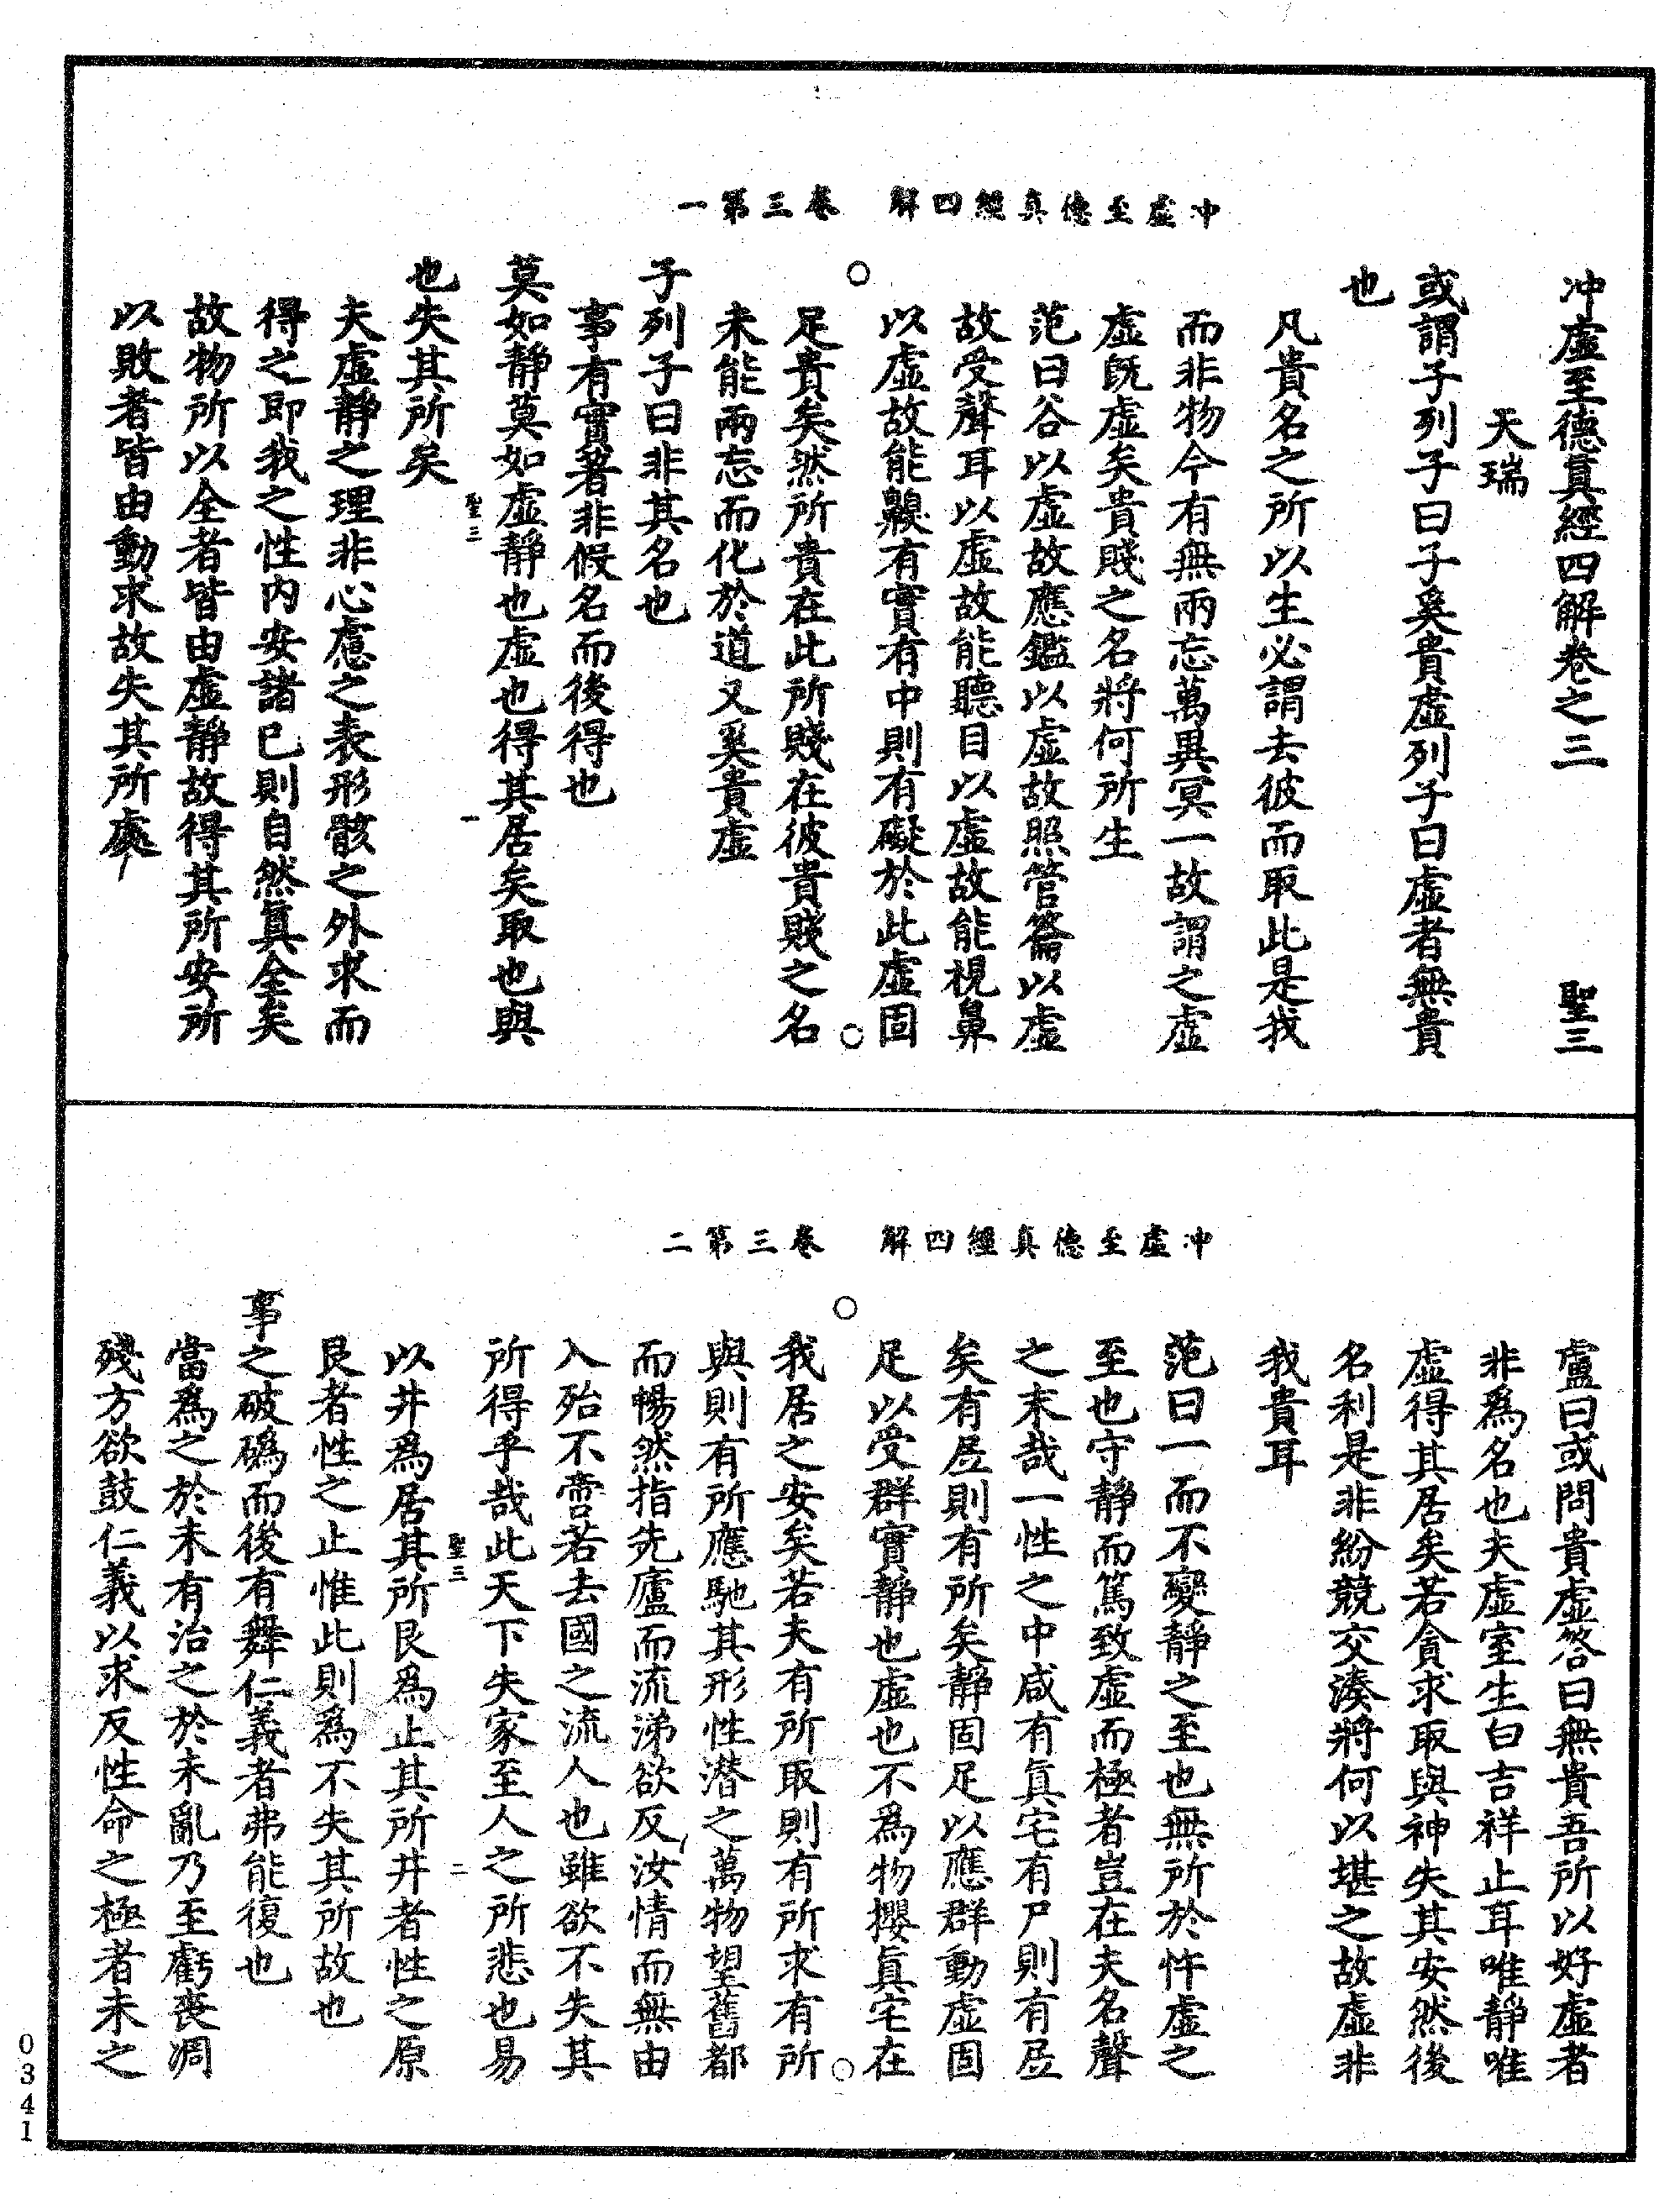 冲虛至德真經四解　卷三第一
冲虛至德真經四解卷之三　聖三
天瑞
或謂子列子曰子奚貴虛列子曰虛者無貴
也
凡貴名之所以生必謂去彼而取此是我
而非物今有無兩忘萬異冥一故謂之虛
虛既虛矣貴賤之名將何所生
范曰谷以虛故應鑑以虛故照管籥以虛
故受聲耳以虛故能聽目以虛故能視鼻
以虛故能齅有實有中則有礙於此虛固
足貴矣然所貴在此所賤在彼貴賤之名
未能兩忘而化於道又奚貴虛
子列子曰非其名也
事有實著非假名而後得也
莫如靜莫如虛靜也虛也得其居矣取也與
聖三　一
也失其所矣
夫虛靜之理非心慮之表形骸之外求而
得之即我之性內安諸已則自然眞全矣
故物所以全者皆由虛靜故得其所安所
以敗者皆由動求故失其所處
冲虛至德真經四解　卷三第二
盧曰或問貴虛答曰無貴吾所以好虛者
非爲名也夫虛室生白吉祥止耳唯靜唯
虛得其居矣若貪求取與神失其安然後
名利是非紛競交湊將何以堪之故虛非
我貴耳
范曰一而不變靜之至也無所於忤虛之
至也守靜而篤致虛而極者豈在夫名聲
之末哉一性之中咸有眞宅有尸則有居
矣有居則有所矣靜固足以應群動虛固
足以受群實靜也虛也不爲物攖眞宅在
我居之安矣若夫有所取則有所求有所
與則有所應馳其形性潜之萬物望舊都
而暢然指先廬而流涕欲反汝情而無由
入殆不啻若去國之流人也雖欲不失其
所得乎哉此天下失家至人之所悲也易
聖三　二
以井爲居其所艮爲止其所井者性之原
艮者性之止惟此則爲不失其所故也
事之破䃣而後有舞仁義者弗能復也
當爲之於未有治之於未亂乃至虧喪凋
殘方欲鼓仁義以求反性命之極者未之
0341